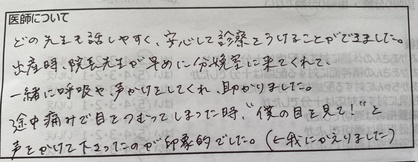 医師について
どの先生も話しやすく、安心して診察をうけることができました。
出産時、院長先生が早めに分娩室に来てくれて、
一緒に呼吸や声かけをしてくれ、助かりました。
途中痛みで目をつむってしまった時、"僕の目を見て！"と
声をかけて下さったのが印象的でした。（←我にかえりました）